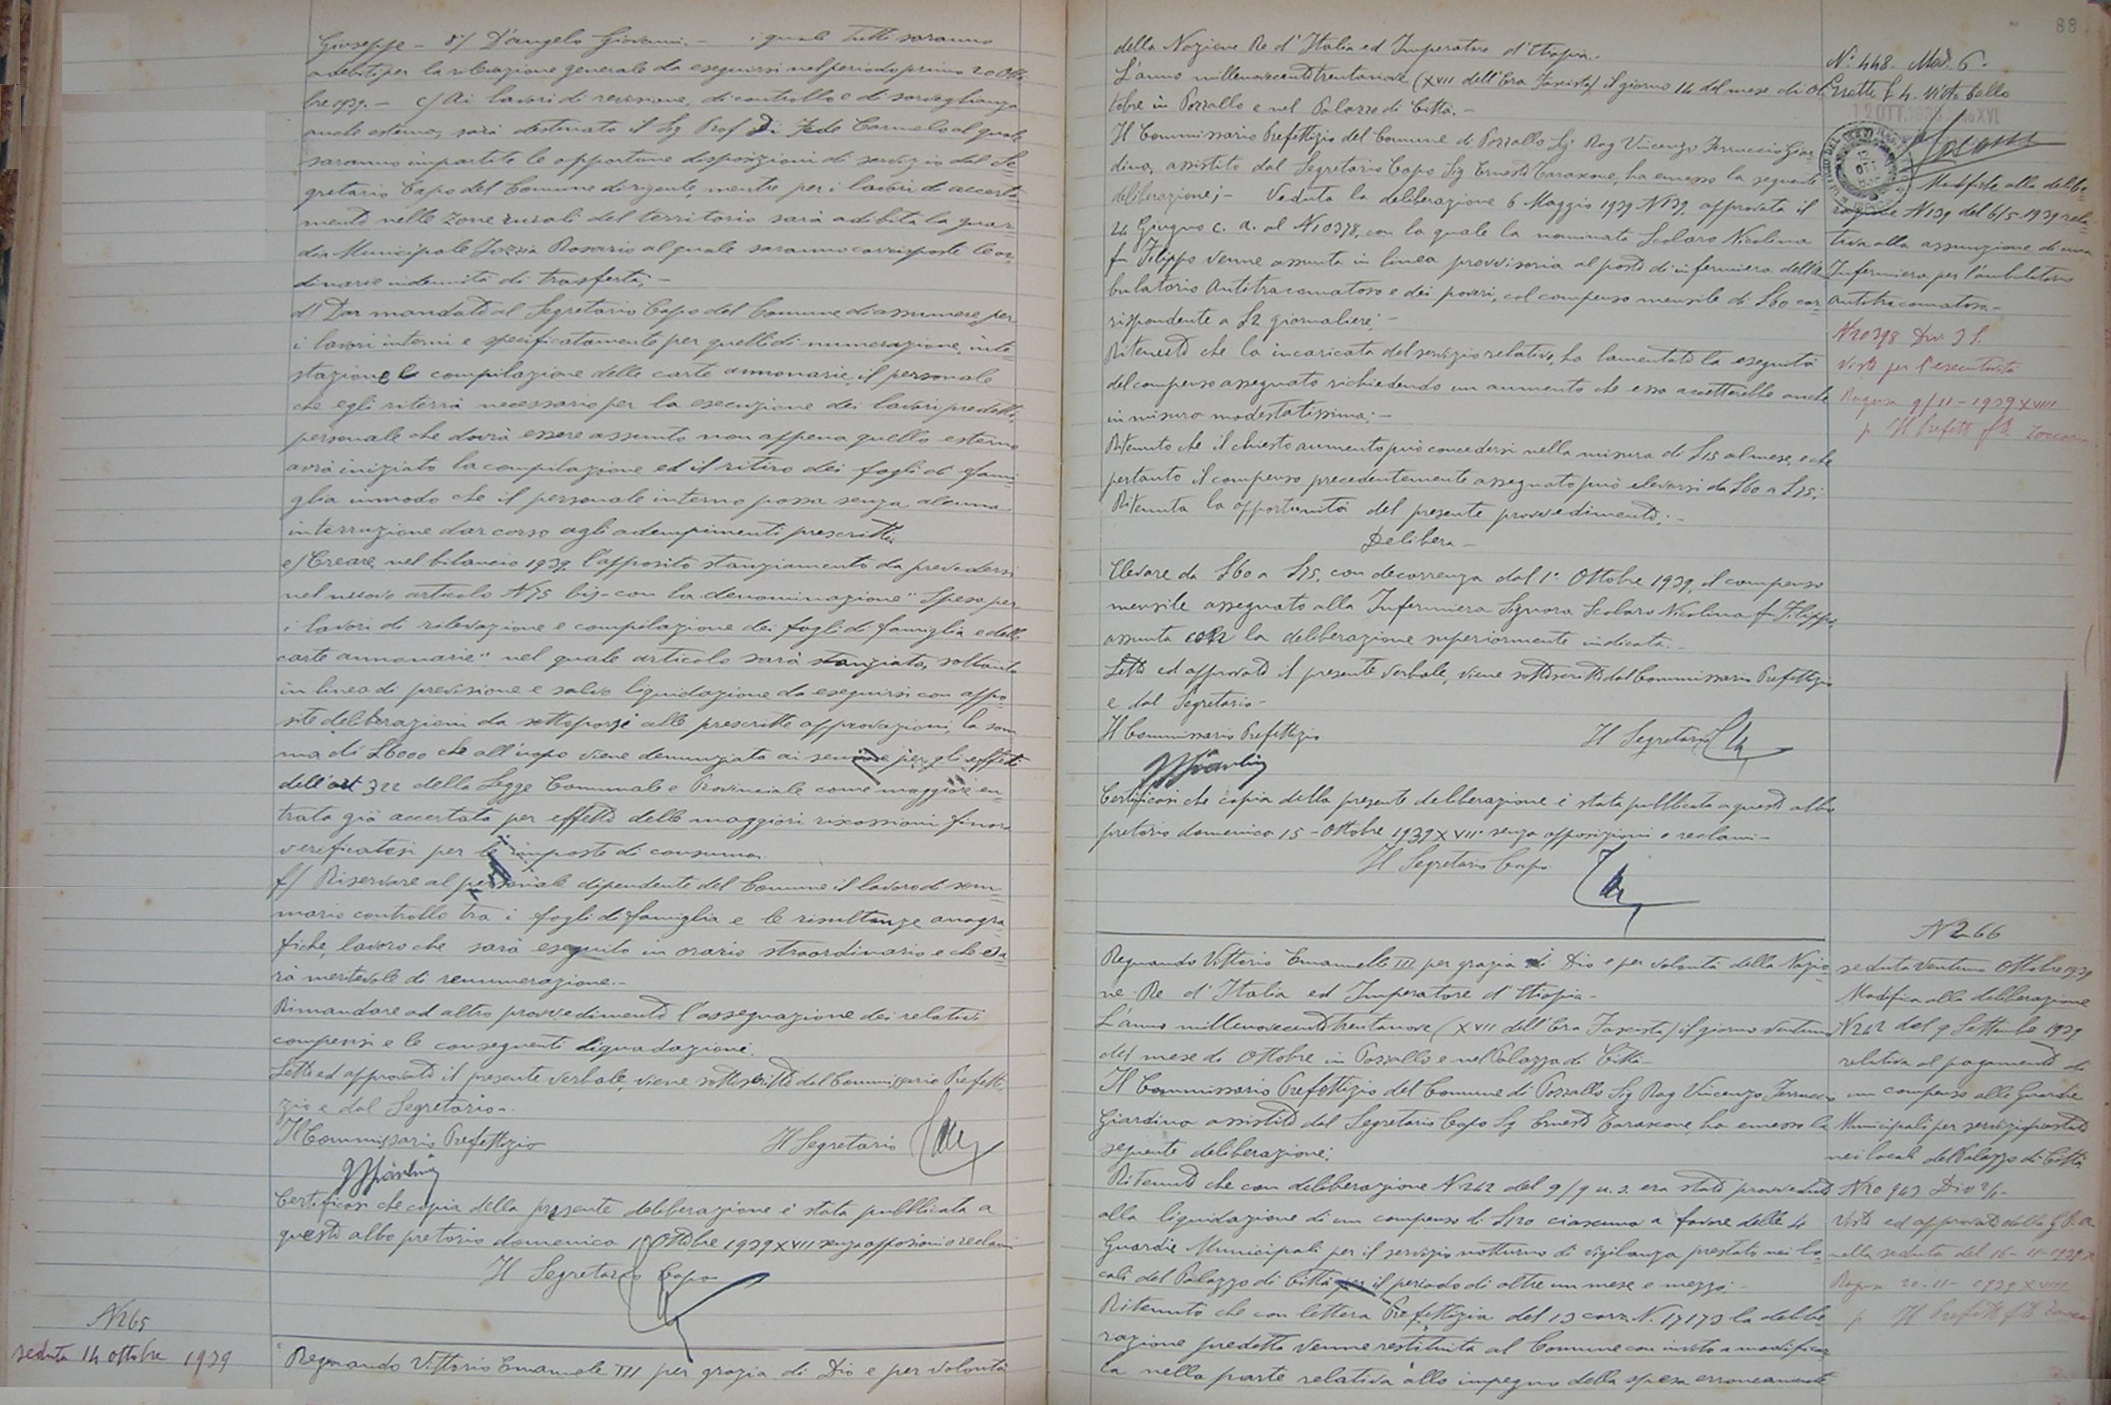 Giuseppe - 8°/ D'angelo Giovanni. - i quali tutti saranno
adibiti per la rilevazione generale da eseguirsi nel periodo primo 20 Otto-
bre 1939. - c/ Ai lavori di revisione, di controllo e di sorveglianza
anche esterna, sarà destinato il Sig Prof Di Fede Carmelo al quale
saranno impartite le opportune disposizioni di servizio dal Se-
gretario Capo del Comune dirigente, mentre per i lavori di accerta-
mento nelle zone rurali del territorio sarà adibita la guar-
dia Municipale Rosario al quale saranno corrisposte le or-
dinarie indennità di trasferta; -
d/ Dar mandato al Segretario Capo del Comune di assumere, per
i lavori interni e specificatamente per quelli di numerazione, inte-
stazione e compilazione delle carte annonarie, il personale
che egli riterrà necessario per la esecuzione dei lavori predetti,
personale che dovrà essere assunto non appena quello esterno
avrà iniziato la compilazione ed il ritiro dei fogli di fami-
glia in modo che il personale interno possa senza alcuna
interruzione dar corso agli adempimenti prescritti.
e/ Creare nel bilancio 1939 l'apposito stanziamento da prevedersi
nel nuovo articolo N 75 bis - con la denominazione "Spese per
i lavori di rilevazione e compilazione dei fogli di famiglia e delle
carte annonarie" nel quale articolo sarà stanziata, soltanto
in linea di previsione e salvo liquidazione da eseguirsi con appo-
site deliberazioni da sottoporsi alle prescritte approvazioni, la som-
ma di L 6000 che all'uopo viene denunziata ai sensi e per gli effetti
dell'art 322 della Legge Comunale e Provinciale come maggiore en-
trata già accertata per effetto delle maggiori riscossioni finora
verificatesi per le imposte di consumo.
f/ Riservare al personale dipendente del Comune il lavoro di som-
mario controllo tra i fogli di famiglia e le risultanze anagra-
fiche, lavoro che sarà eseguito in orario straordinario e che sa-
rà meritevole di remunerazione. -
Rimandare ad altro provvedimento l'assegnazione dei relativi
compensi e le conseguenti liquidazioni.
Letto ed approvato il presente verbale, viene sottoscritto dal Commissario Prefetti-
zio e dal Segretario -
Il Commissario Prefettizio Il Segretario
Certificasi che copia della presente deliberazione è stata pubblicata a
questo albo pretorio domenica Ottobre 1939 XVII senza opposizioni o reclami
Il Segretario Capo
N 265
seduta 14 ottobre 1939
Regnando Vittorio Emanuele III per grazia di Dio e per volontà
88
della Nazione Re d'Italia ed Imperatore d'Etiopia. -
L'anno millenovecentotrentanove (XVII dell'Era Fascista) il giorno 14 del mese di Ot-
tobre in Pozzallo e nel Palazzo di Città. -
Il Commissario Prefettizio del Comune di Pozzallo Sig Rag Vincenzo Ferruccio Giar-
dina, assistito dal Segretario Capo Sig Ernesto Carasone, ha emesso la seguente
deliberazione; - Veduta la deliberazione 6 Maggio 1939 N 139, approvata il
24 Giugno c. a. al N 10378, con la quale la nominata Scolaro Nicolina
fu Filippo venne assunta in linea provvisoria al posto di infermiera dell'Am-
bulatorio Antitracomatoso e dei poveri, col compenso mensile di L 60 cor-
rispondente a L 2 giornaliere; -
Ritenuto che la incaricata del servizio relativo, ha lamentato la esiguità
del compenso assegnato richiedendo un aumento che essa accetterebbe anche
in misura modestatissima; -
Ritenuto che il chiesto aumento può concedersi nella misura di L 15 al mese, e che
pertanto il compenso precedentemente assegnato può elevarsi da L 60 a L 75;
Ritenuta la opportunità del presente provvedimento; -
Delibera -
Elevare da L 60 a L 75, con decorrenza dal 1° Ottobre 1939, il compenso
mensile assegnato alla Infermiera Signora Scolaro Nicolina fu Filippo,
assunta con la deliberazione superiormente indicata. -
Letto ed approvato il presente verbale, viene sottoscritto dal Commissario Prefettizio
e dal Segretario -
Il Commissario Prefettizio Il Segretario
Certificasi che copia della presente deliberazione è stata pubblicata a questo albo
pretorio domenica 15 - Ottobre 1939 XVII senza opposizioni o reclami -
Il Segretario Capo
Regnando Vittorio Emanuele III per grazia di Dio e per volontà della Nazio-
ne Re d'Italia ed Imperatore d'Etiopia -
L'anno millenovecentotrentanove (XVII dell'Era Fascista) il giorno ventuno
del mese di Ottobre in Pozzallo e nel Palazzo di Città -
Il Commissario Prefettizio del Comune di Pozzallo Sig Rag Vincenzo Ferruccio
Giardina assistito dal Segretario Capo Sig Ernesto Carasone, ha emesso la
seguente deliberazione;
Ritenuto che con deliberazione N 242 del 9/9 u. s. era stato provveduto
alla liquidazione di un compenso di L 120 ciascuna a favore delle 4
Guardie Municipali per il servizio notturno di vigilanza prestato nei lo-
cali del Palazzo di Città per il periodo di oltre un mese e mezzo; -
Ritenuto che con lettera Prefettizia del 13 corr. N. 17173 la delibe-
razione predetta venne restituita al Comune con invito a modificar-
la nella parte relativa allo impegno della spesa erroneamente
N° 448. Mod. 6.
Modifica alla delibe-
razione N 139 del 6/5-1939 rela-
tiva alla assunzione di una
Infermiera per l'ambulatorio
antitracomatoso -
N 20398 Div.
Visto per l'esecutività
Ragusa 9/11 - 1939 XVIII
p Il Prefetto
N 266
seduta ventuno Ottobre 1939
Modifica alla deliberazione
N 242 del 9 Settembre 1939
relativa al pagamento di
un compenso alle Guardie
Municipali per servizi prestati
nei locali del Palazzo di Città
N 20963 Div
Visto ed approvato dalla G. P. A.
nella seduta del 16-11-1939 X
Ragusa 20-11-1939 XVIII
p Il Prefetto